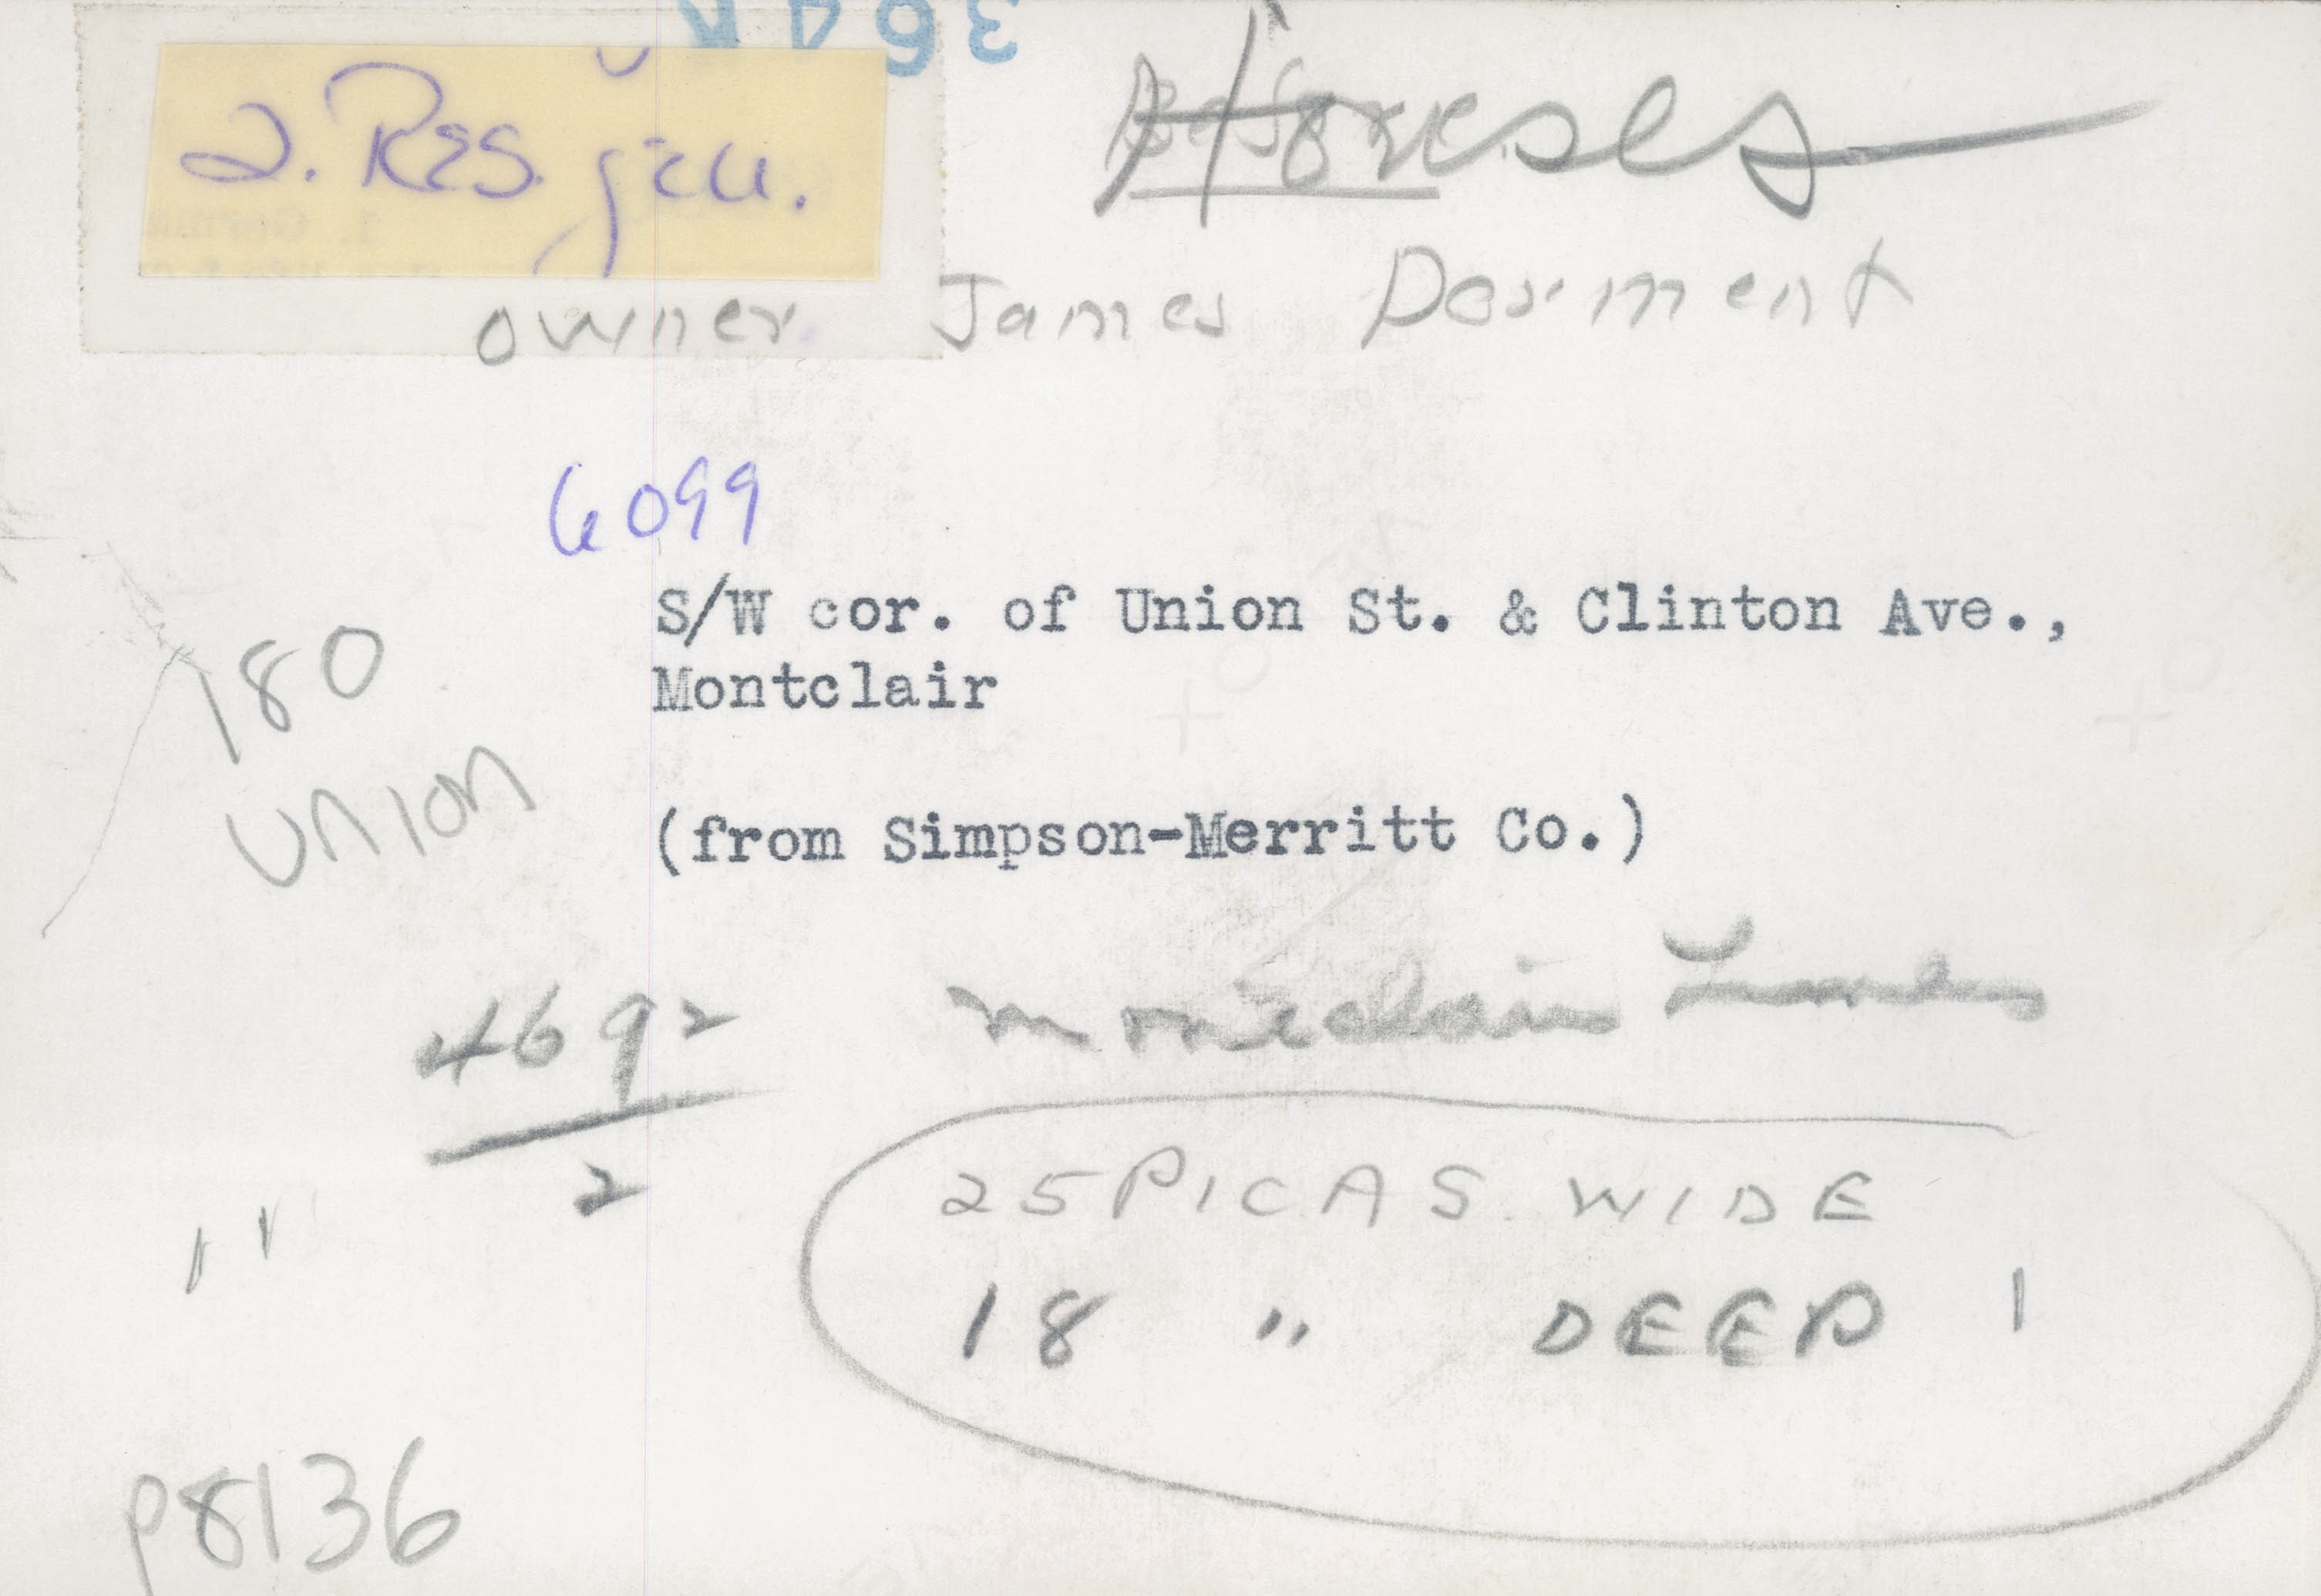 2. Res. gen.
Houses
owner James Dorment
6099
S/W cor. of Union St. & Clinton Ave.,
Montclair
(from Simpson-Merritt Co.)
180
UNION
4692
2
Montclair Times
25 PICAS WIDE
18 " DEEP
P8136